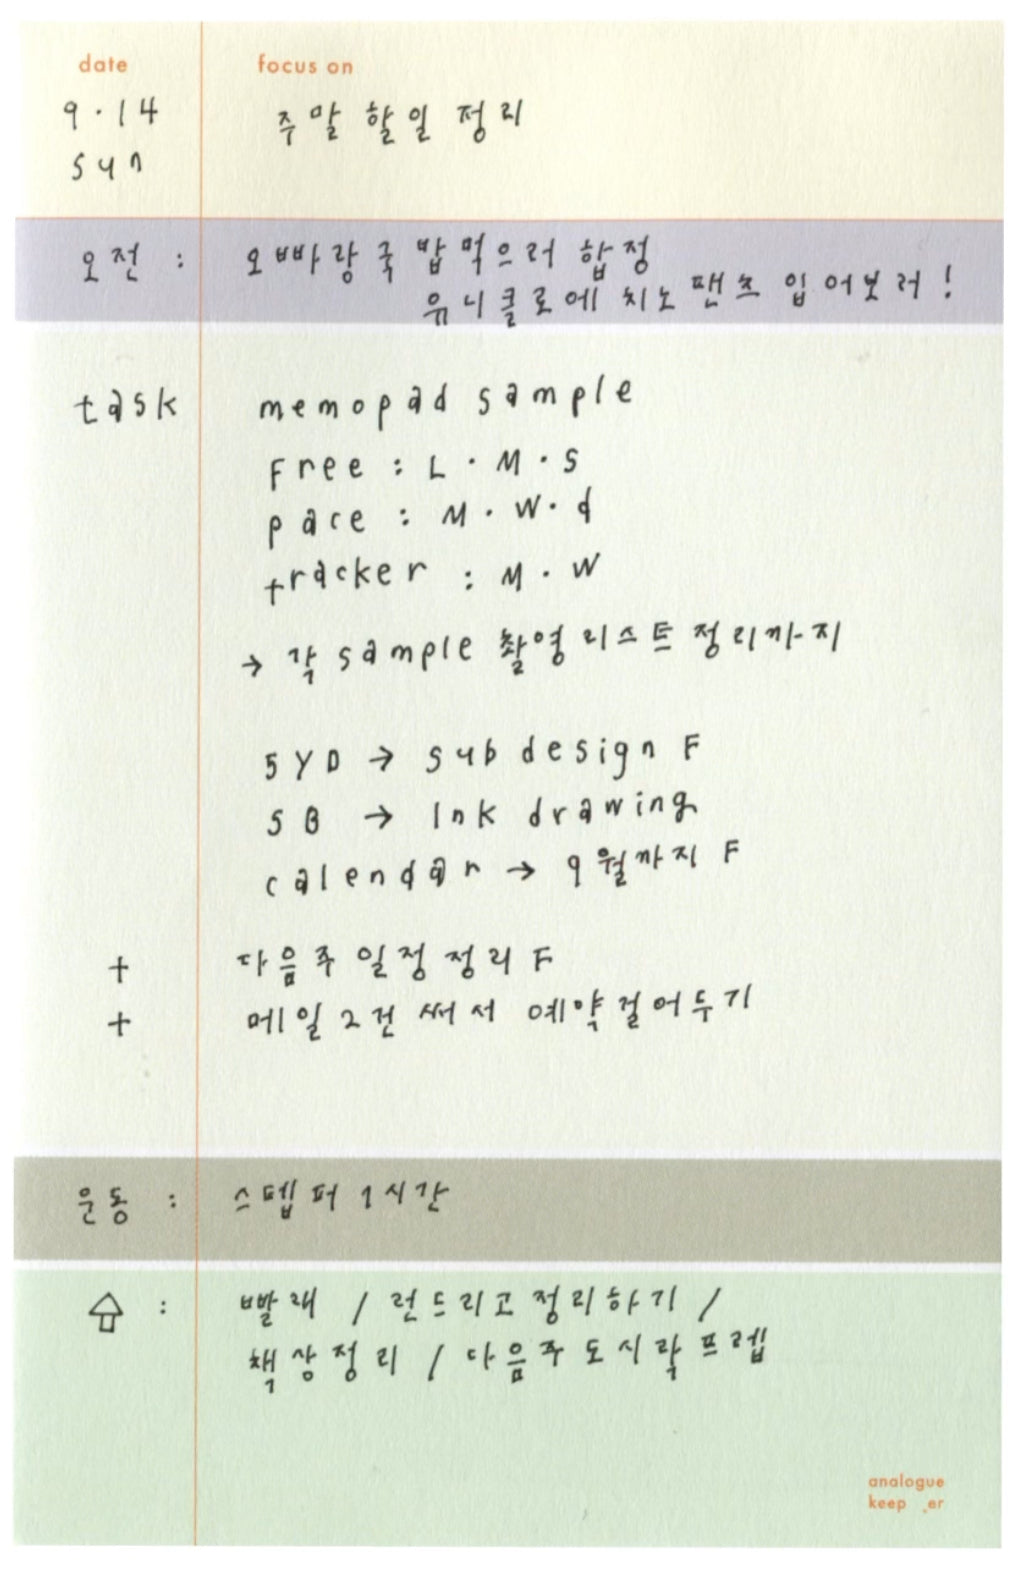 date focus on
9·14 주말 할일 정리
sun
오전 : 오빠랑 국밥 먹으러 합정
유니클로에 치노 팬츠 입어보러!
task memopad sample
Free : L · M · S
pace : M · W · d
tracker : M · W
→ 각 sample 촬영 리스트 정리까지
SYD → sub design F
SB → Ink drawing
calendar → 9월까지 F
+ 다음주 일정 정리 F
+ 메일 2건 써서 예약걸어두기
운동 : 스텝퍼 1시간
: 빨래 / 런드리고 정리하기 /
책상정리 / 다음주 도시락 프렙
analogue
keep ,er